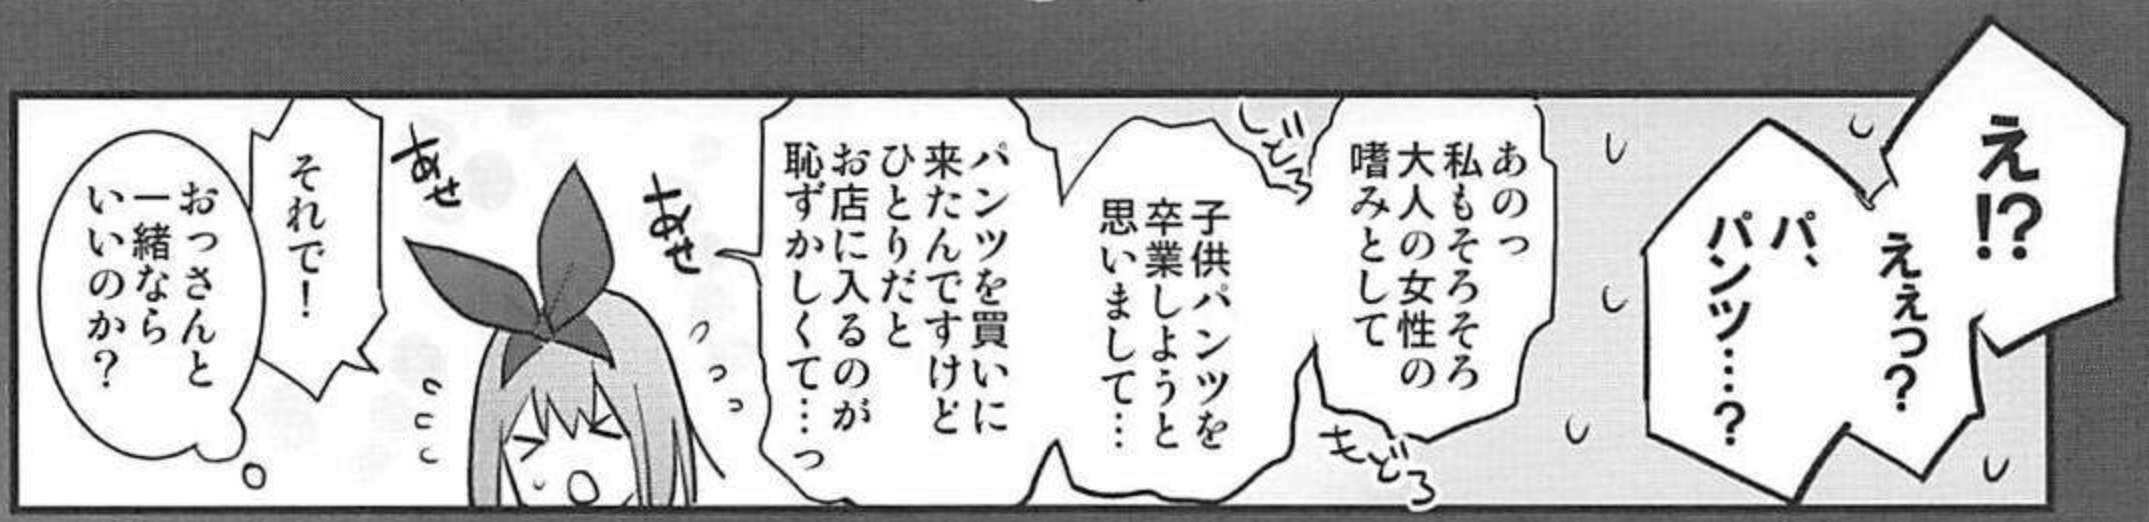 え!?
えぇっ?
パ、
パンツ…?
あのっ
私もそろそろ
大人の女性の
嗜みとして
しどろ
もどろ
子供パンツを
卒業しようと
思いまして…
パンツを買いに
来たんですけど
ひとりだと
お店に入るのが
恥ずかしくて…っ
あせ
あせ
それで!
おっさんと
一緒なら
いいのか?